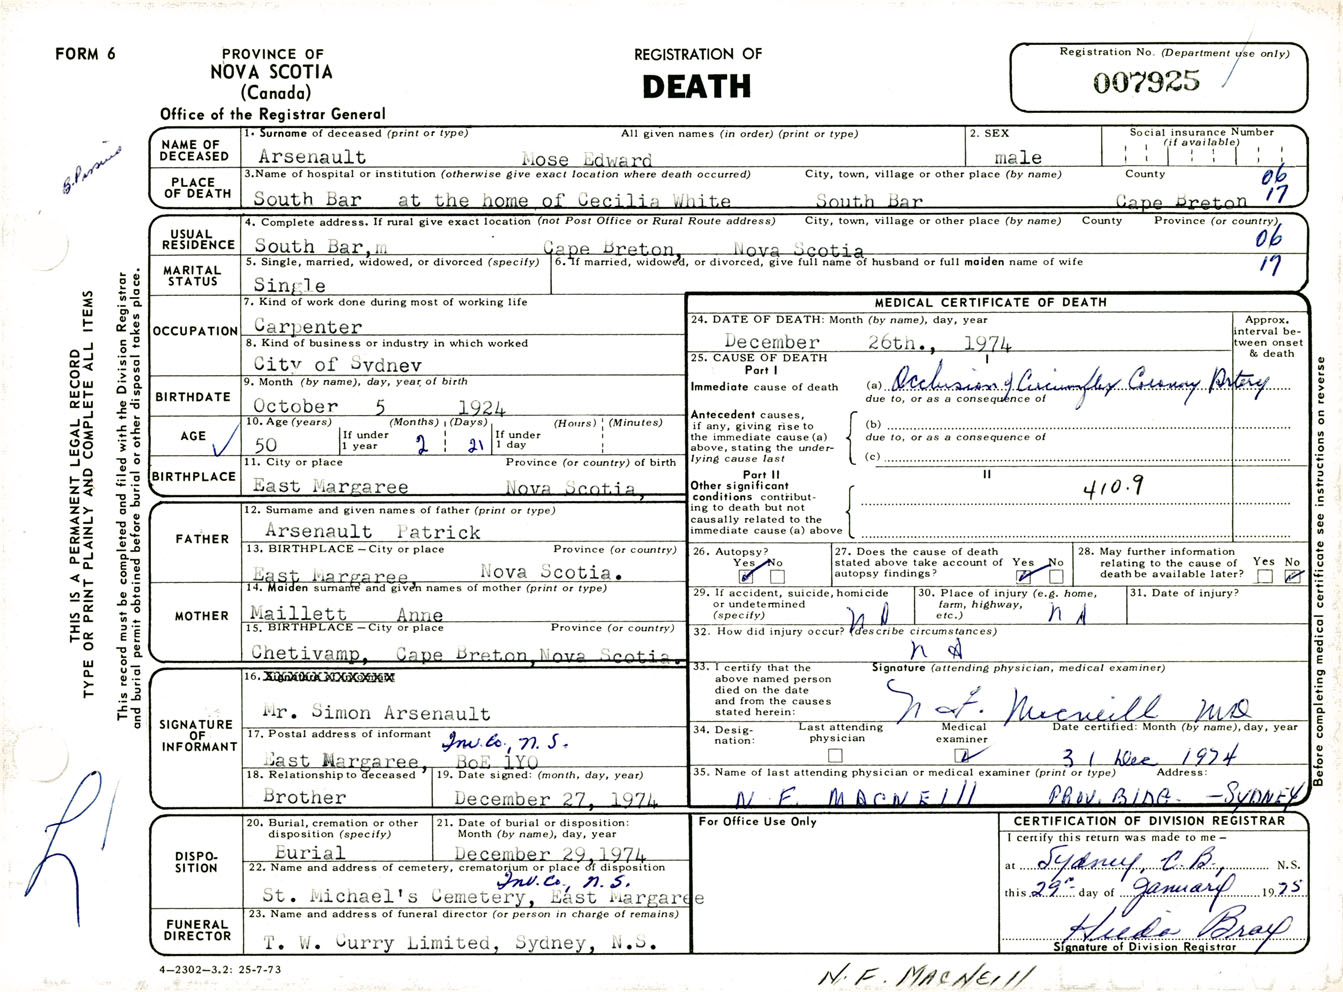 FORM 6
PROVINCE OF
NOVA SCOTIA
(Canada)
Office of the Registrar General
REGISTRATION OF
DEATH
Registration No. (Department use only)
007925
THIS IS A PERMANENT LEGAL RECORD
TYPE OR PRINT PLAINLY AND COMPLETE ALL ITEMS
This record must be completed and filed with the Division Registrar
and burial permit obtained before burial or other disposal takes place.
NAME OF DECEASED
1. Surname of deceased (print or type) All given names (in order) (print or type)
Arsenault Mose Edward
2. SEX
male
Social insurance Number
(if available)
PLACE OF DEATH
3. Name of hospital or institution (otherwise give exact location where death occurred) City, town, village or other place (by name) County
06
South Bar at the home of Cecilia White South Bar Cape Breton 17
USUAL RESIDENCE
4. Complete address. If rural give exact location (not Post Office or Rural Route address) City, town, village or other place (by name) County Province (or country)
South Bar,m Cape Breton, Nova Scotia 06
MARITAL STATUS
5. Single, married, widowed, or divorced (specify)
Single
6. If married, widowed, or divorced, give full name of husband or full maiden name of wife
17
OCCUPATION
7. Kind of work done during most of working life
Carpenter
8. Kind of business or industry in which worked
City of Sydney
BIRTHDATE
9. Month (by name), day, year, of birth
October 5 1924
AGE
10. Age (years) (Months) (Days) (Hours) (Minutes)
50 If under 1 year 2 21 If under 1 day
BIRTHPLACE
11. City or place Province (or country) of birth
East Margaree Nova Scotia,
FATHER
12. Surname and given names of father (print or type)
Arsenault Patrick
13. BIRTHPLACE – City or place Province (or country)
East Margaree, Nova Scotia.
MOTHER
14. Maiden surname and given names of mother (print or type)
Maillett Anne
15. BIRTHPLACE – City or place Province (or country)
Chetivamp, Cape Breton, Nova Scotia.
SIGNATURE OF INFORMANT
16.
Mr. Simon Arsenault
17. Postal address of informant Inv. Co., N.S.
East Margaree, BoE 1YO
18. Relationship to deceased
Brother
19. Date signed: (month, day, year)
December 27, 1974
DISPO-SITION
20. Burial, cremation or other disposition (specify)
Burial
21. Date of burial or disposition: Month (by name), day, year
December 29,1974
22. Name and address of cemetery, crematorium or place of disposition
Inv. Co., N.S.
St. Michael's Cemetery, East Margaree
FUNERAL DIRECTOR
23. Name and address of funeral director (or person in charge of remains)
T. W. Curry Limited, Sydney, N.S.
4–2302–3.2: 25-7-73
MEDICAL CERTIFICATE OF DEATH
24. DATE OF DEATH: Month (by name), day, year
December 26th., 1974
Approx. interval between onset & death
25. CAUSE OF DEATH
Part I
I
Immediate cause of death (a) Occlusion of Circumflex Coronary Artery
due to, or as a consequence of
Antecedent causes, if any, giving rise to the immediate cause (a) above, stating the underlying cause last
(b)
due to, or as a consequence of
(c)
Part II
II
Other significant conditions contributing to death but not causally related to the immediate cause (a) above
410.9
26. Autopsy?
Yes No
27. Does the cause of death stated above take account of autopsy findings?
Yes No
28. May further information relating to the cause of death be available later?
Yes No
29. If accident, suicide, homicide or undetermined (specify)
N A
30. Place of injury (e.g. home, farm, highway, etc.)
N A
31. Date of injury?
32. How did injury occur? (describe circumstances)
N A
33. I certify that the above named person died on the date and from the causes stated herein:
Signature (attending physician, medical examiner)
N. F. Macneill MD
34. Designation:
Last attending physician
Medical examiner
Date certified: Month (by name), day, year
31 Dec 1974
35. Name of last attending physician or medical examiner (print or type) Address:
N. F. MACNEIll PROV. BLDG. – SYDNEY
For Office Use Only
CERTIFICATION OF DIVISION REGISTRAR
I certify this return was made to me –
at Sydney, C.B., N.S.
this 29th day of January 1975
Hilda Bray
Signature of Division Registrar
Before completing medical certificate see instructions on reverse
N. F. MACNEill